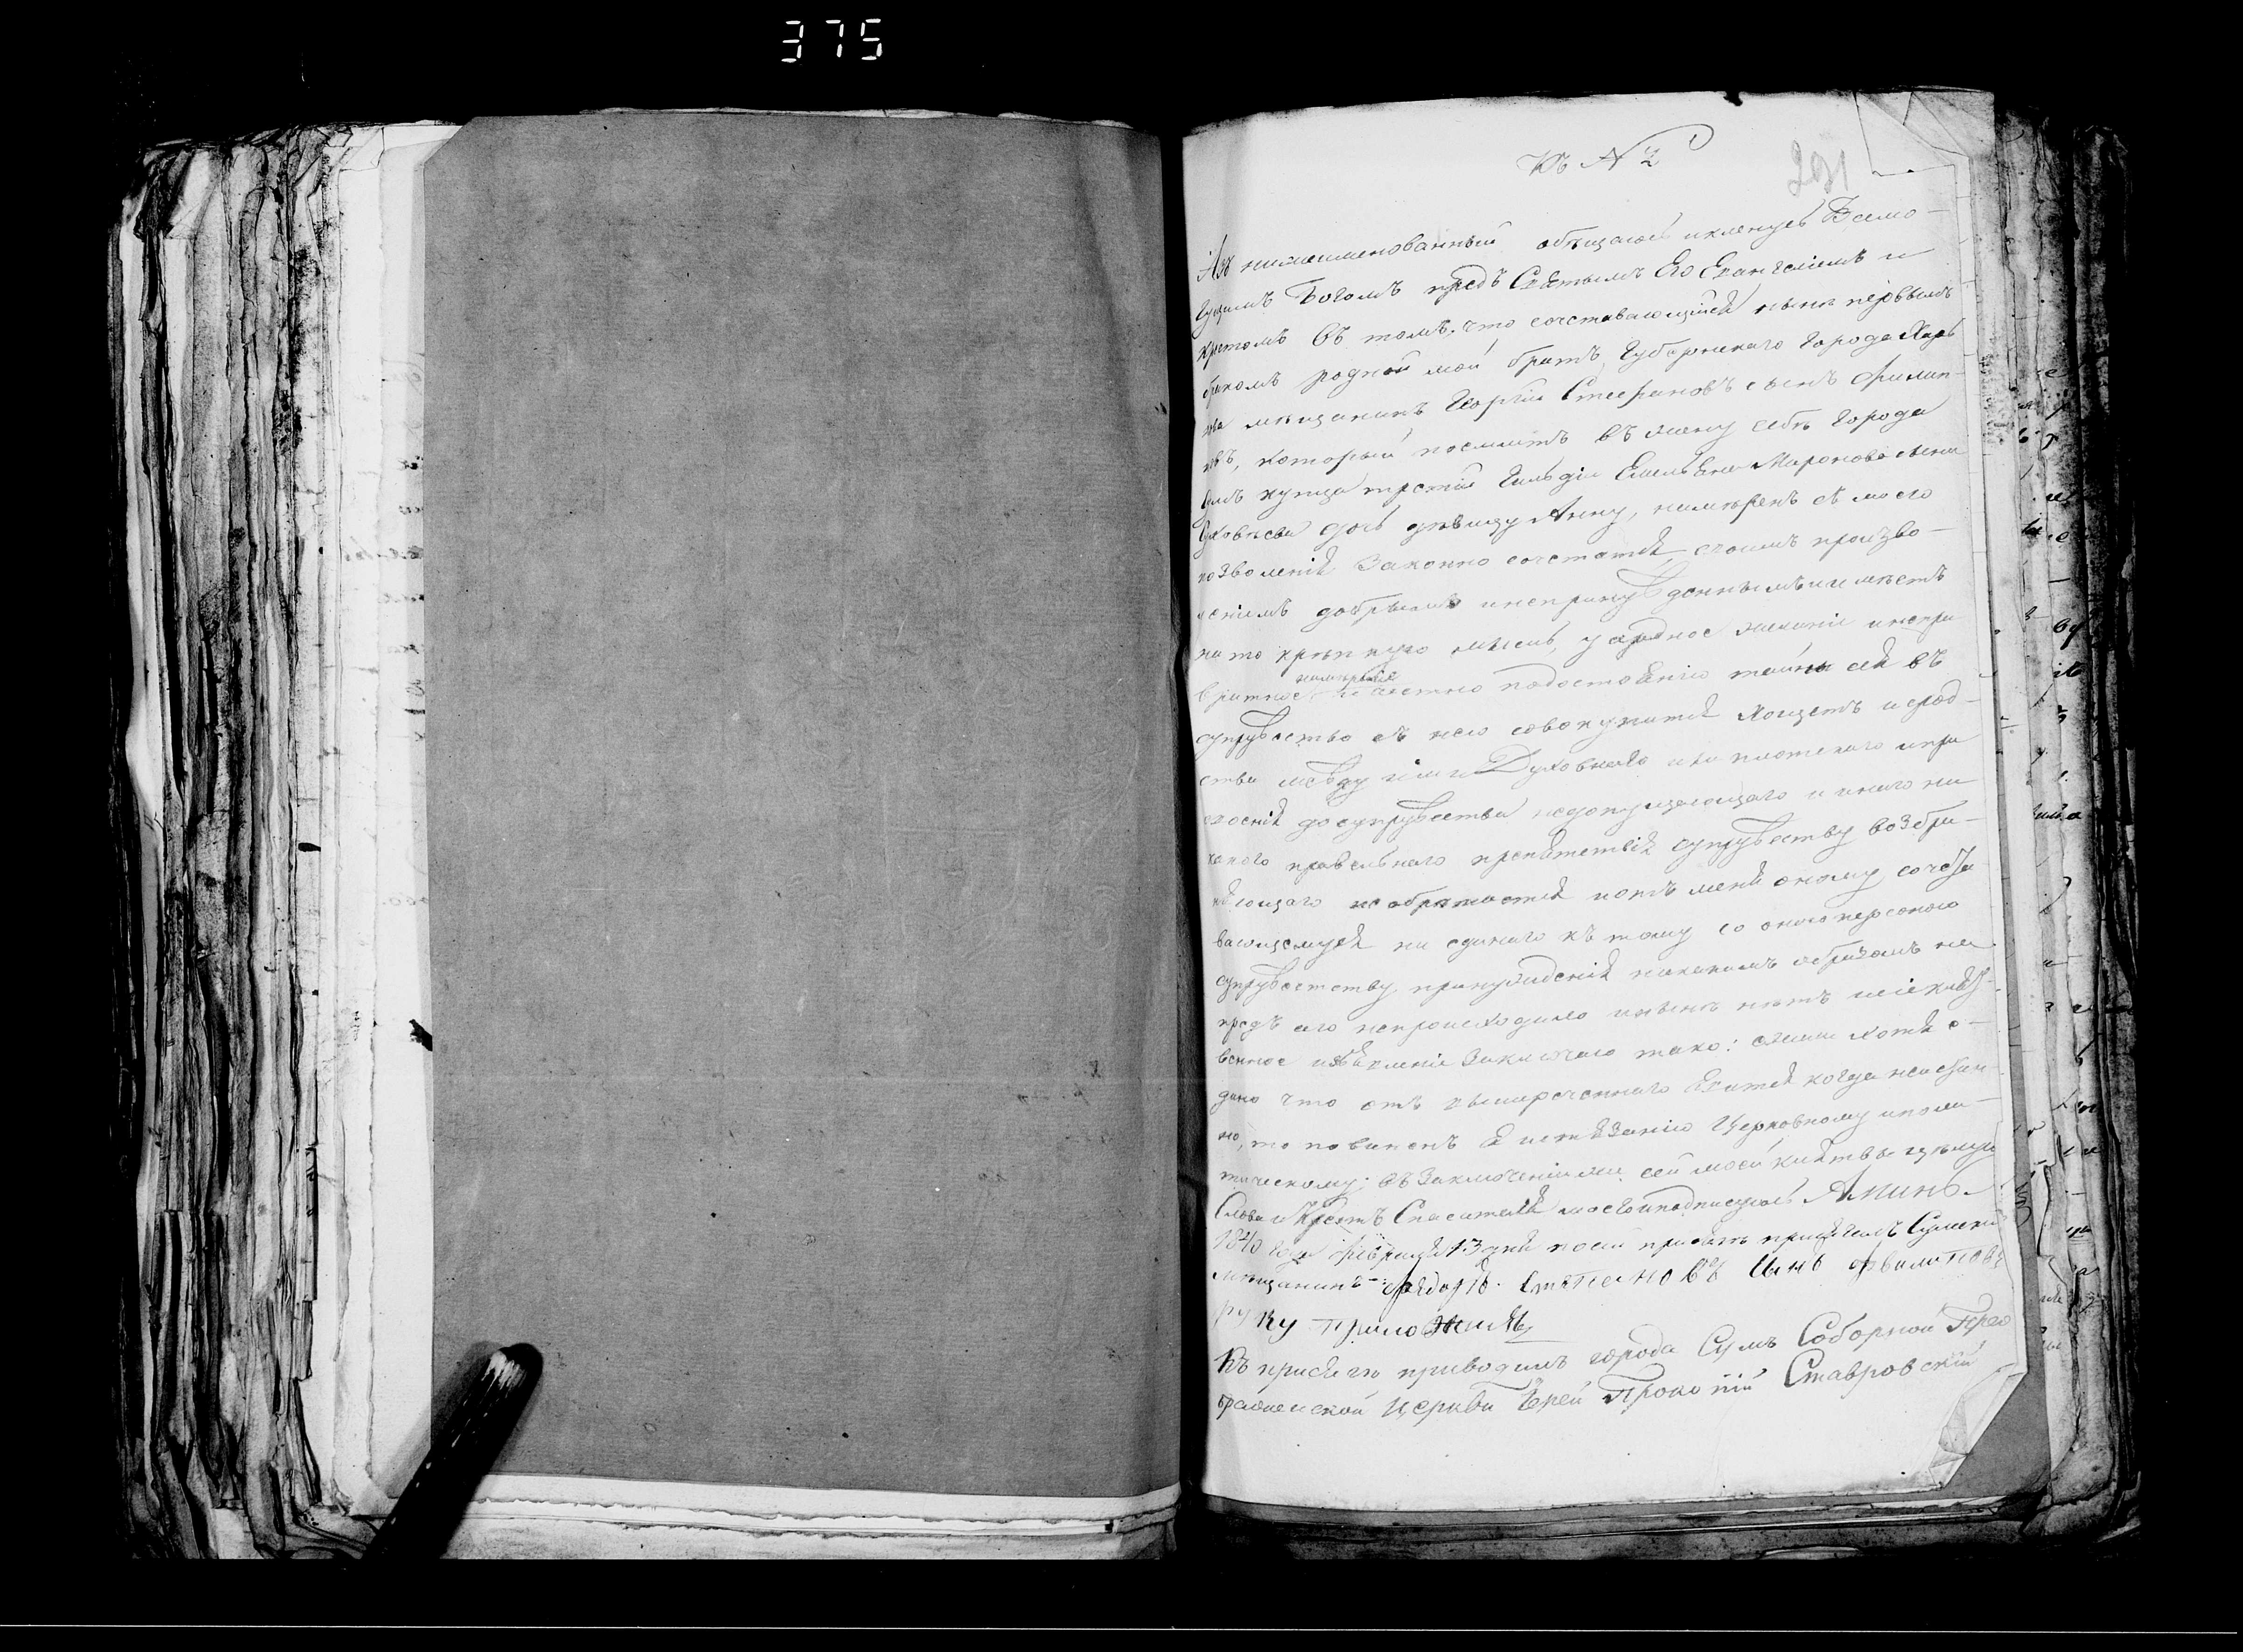 375
Къ № 2
291
Азъ нижеименованный обѣщаюсь и кленусь Всемо-
гущимъ Богомъ предъ Святымъ Его Евангеліемъ и
крестомъ въ томъ, что сочетавающійся нынѣ первымъ
бракомъ родной мой братъ, Губернскаго города Харь
кова мѣщанинъ Георгій Стефановъ сынъ Филип-
повъ, который поемлетъ въ жену себѣ города
Сумъ купца третій гильдіи Емельяна Миронова сына
дочь дѣвицу Анну, намѣренъ съ моего
позволенія законно сочетатся, своимъ произво-
леніемъ добрымъ и непринужденнымъ и имѣетъ
на то крѣпкую мысль, усердное желаніе и непри
вратное намѣреніе и честно по достоянію тайны сея въ
супружество съ нею совокупится хощетъ и срод-
ства между ими Духовнаго или плотскаго и при
своенія до супружества недопущающаго и инаго ни
какого правельнаго препятствія супружеству возбра-
няющаго не обрѣтается и отъ меня оному сочета
вающемуся ни единаго къ тому со оною персоною
супружетству принуждения никакимъ образомъ не
предъ его непроисходило и нынѣ нѣтъ и сіе клят-
венное изъявленіе заключаю тако: ежели хотя е-
дино что отъ вышереченнаго явится когда неистин-
но, то повиненъ я истязанію церковному и поли-
тическому; въ заключеніи же сей моей клятвы цѣлую
Слова и Крестъ Спасителя моего и подписуюсь Аминь.
1840 года Февраля 13 дня по сей присягѣ присягалъ Сумскій
мѣщанинъ Ѳедоръ Степановъ Синъ Филиповъ
руку приложилъ
Къ присягѣ приводилъ города Сумъ Соборной Прео
браженской Церкви Іерей Прокопій Ставровскій